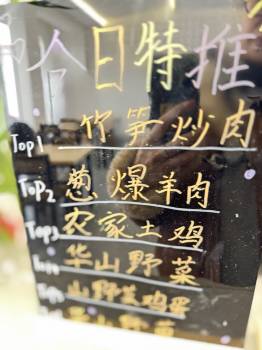 今日特推
Top1 竹笋炒肉
Top2 葱爆羊肉
Top3 农家土鸡
华山野菜
山野菜鸡蛋